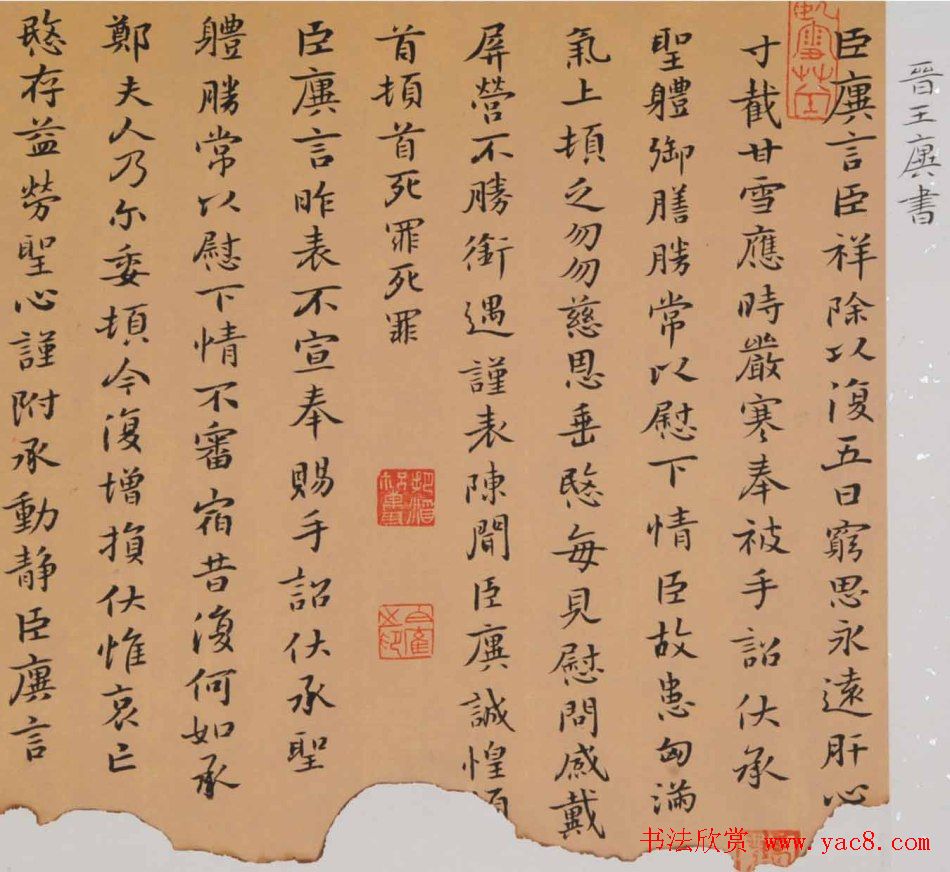 晉王廙書
臣廙言臣祥除以復五日窮思永遠肝心
寸截甘雪應時嚴寒奉被手詔伏承
聖體御膳勝常以慰下情臣故患匈滿
氣上頓乏勿勿慈恩垂愍每見慰問感戴
屏營不勝銜遇謹表陳聞臣廙誠惶頓
首頓首死罪死罪
臣廙言昨表不宣奉賜手詔伏承聖
體勝常以慰下情不審宿昔復何如承
鄭夫人乃尔委頓今復增損伏惟哀亡
愍存益勞聖心謹附承動靜臣廙言
书法欣赏 www.yac8.com